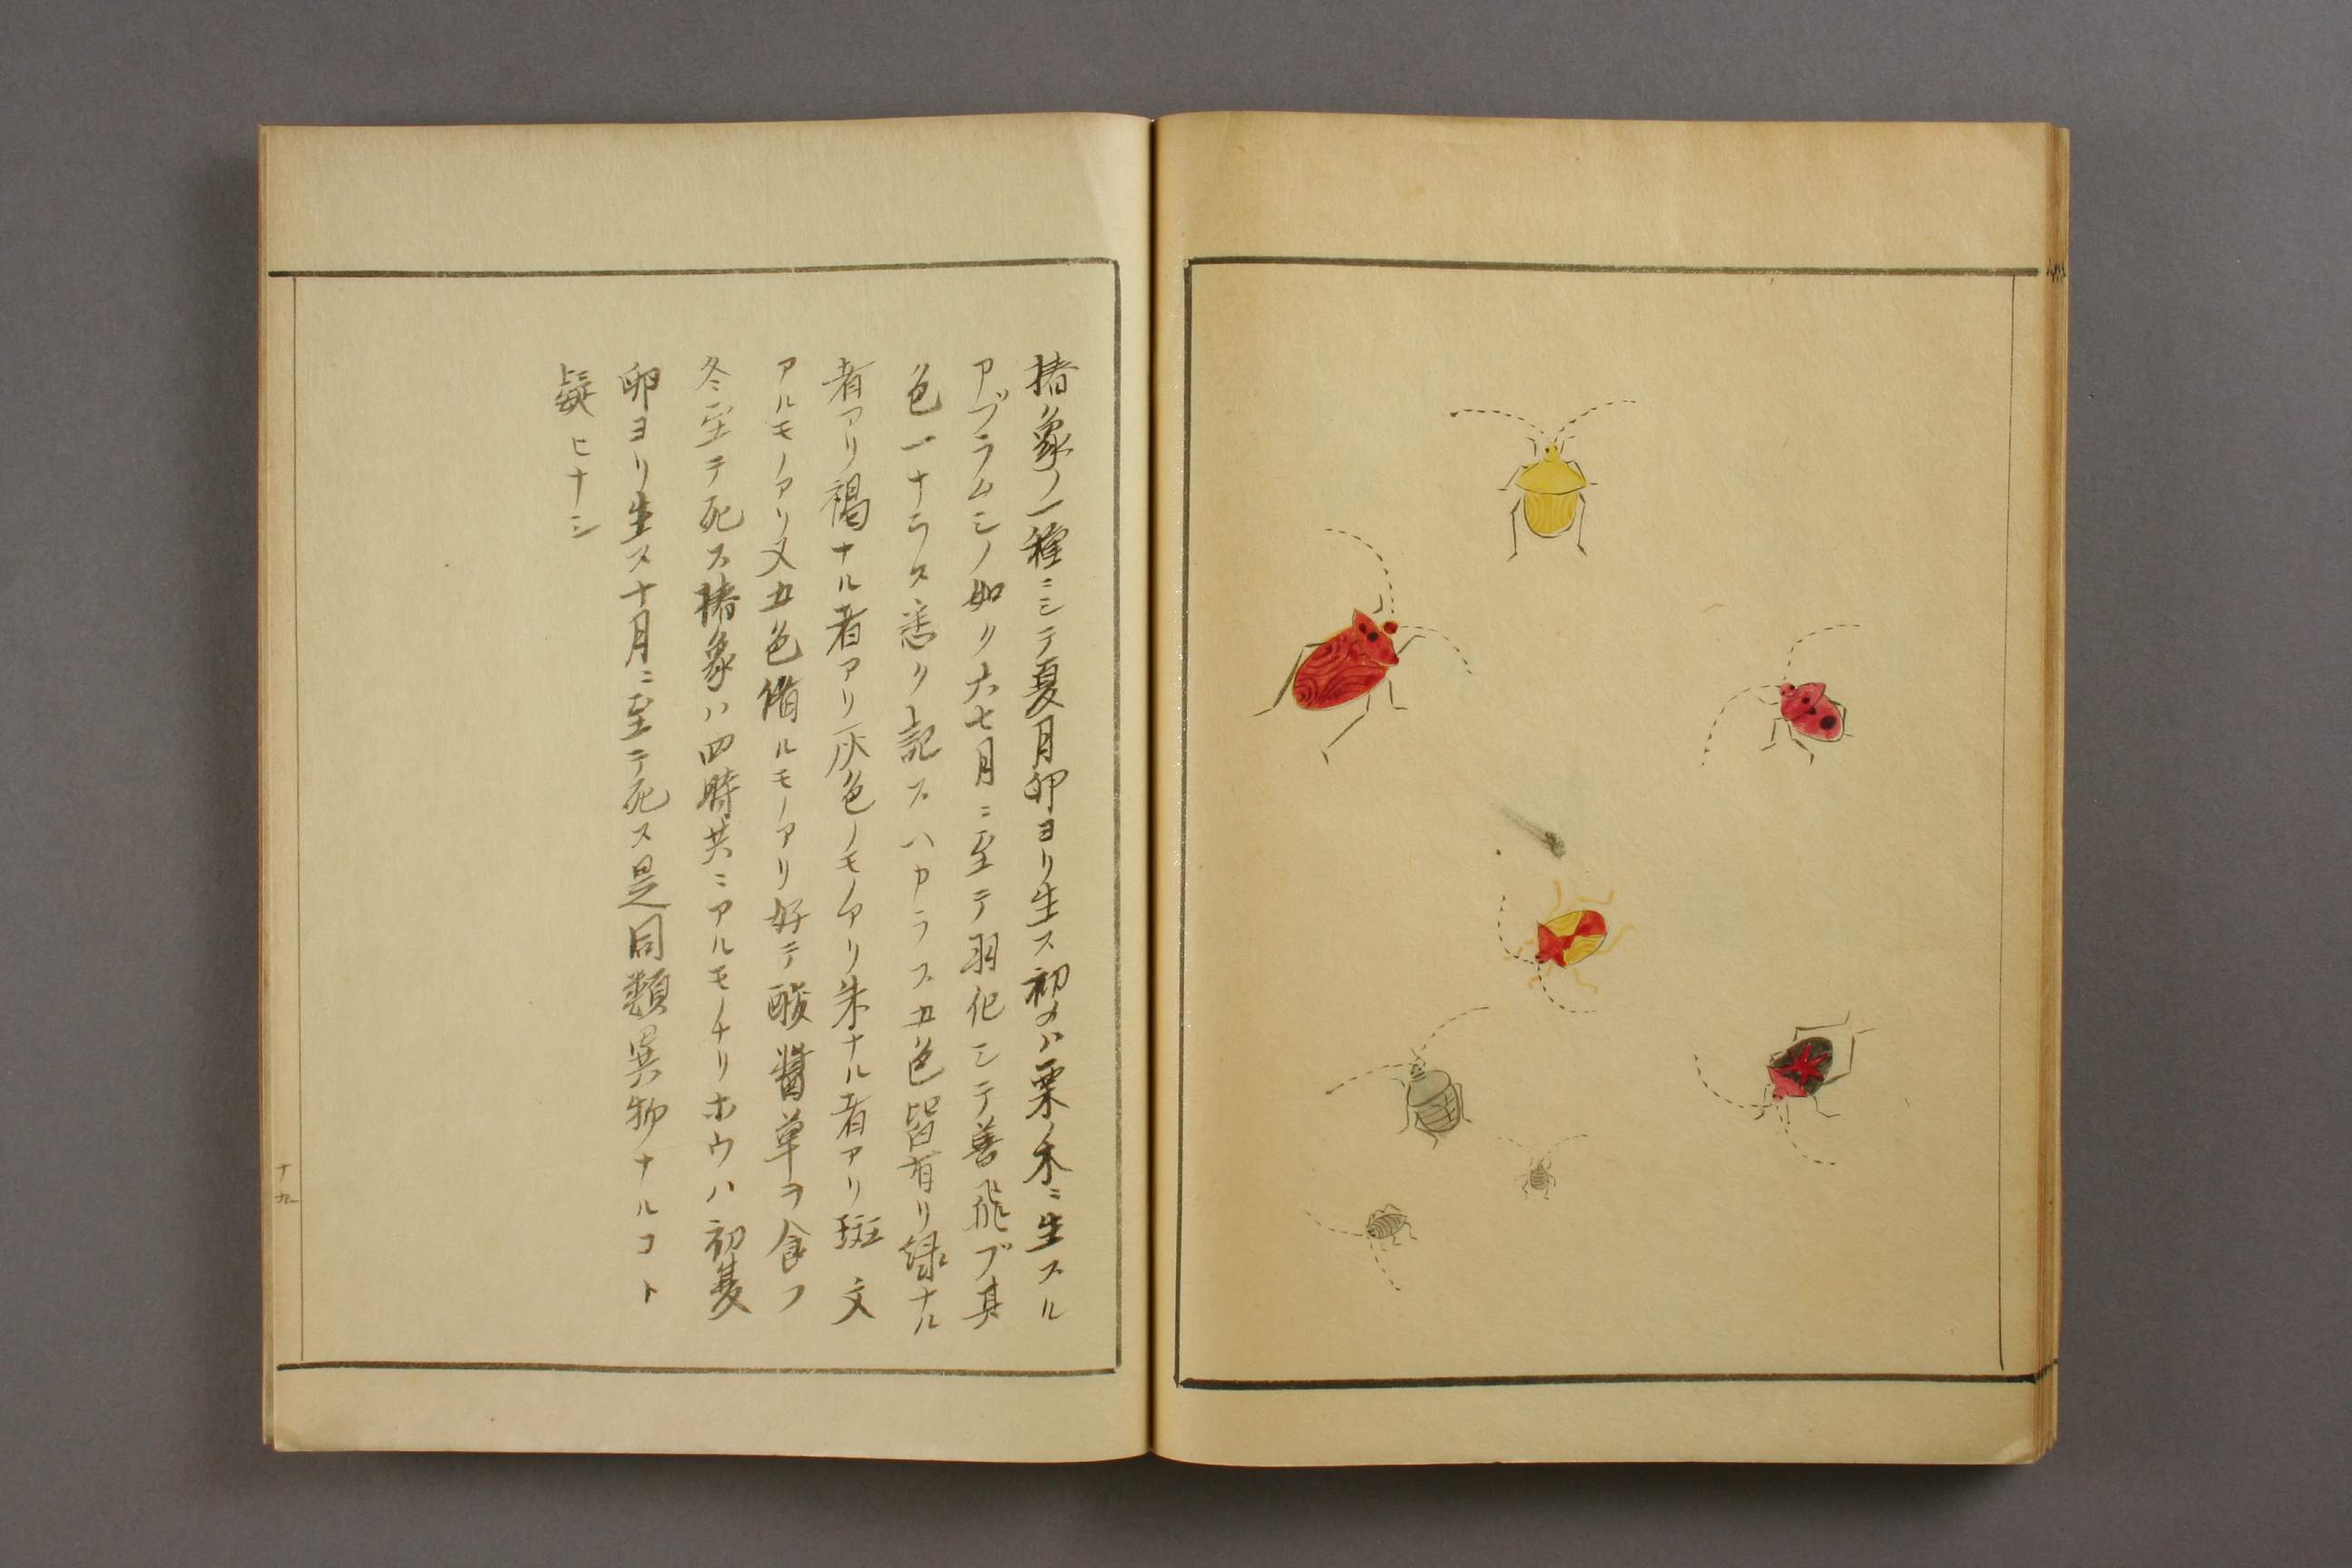 椿象ノ一種ニシテ夏月卵ヨリ生ス初メハ粟禾ニ生スル
アブラムシノ如ク六七月ニ至テ羽化シテ善飛ブ其
色一ナラス悉ク記スヘカラス五色皆有リ緑ナル
者アリ褐ナル者アリ灰色ノモノアリ朱ナル者アリ斑文
アルモノアリ又五色備ルモノアリ好テ酸醤草ヲ食フ
冬ニ至テ死ス椿象ハ四時共ニアルモノナリホウハ初夏
卵ヨリ生ス十月ニ至テ死ス是同類異物ナルコト
疑ヒナシ
十九